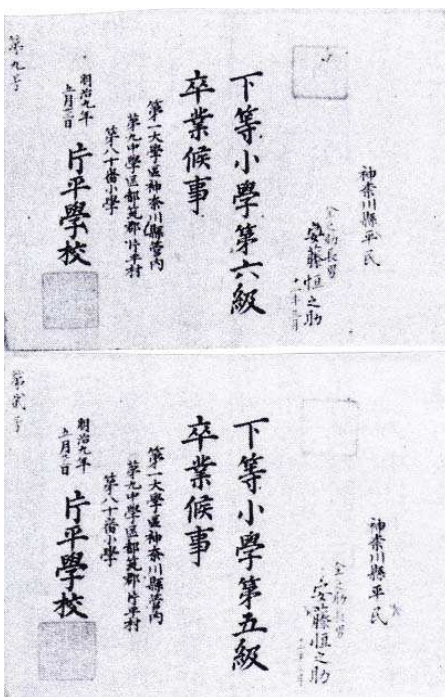 神奈川縣平民
金之助長男
安藤恒之助
下等小學第六級
卒業候事
第一大學区神奈川縣管内
第九中學区都筑郡片平村
第八十番小學
明治九年
五月三日
片平學校
第九号
神奈川縣平民
金之助長男
安藤恒之助
下等小學第五級
卒業候事
第一大學区神奈川縣管内
第九中學区都筑郡片平村
第八十番小學
明治九年
五月三日
片平學校